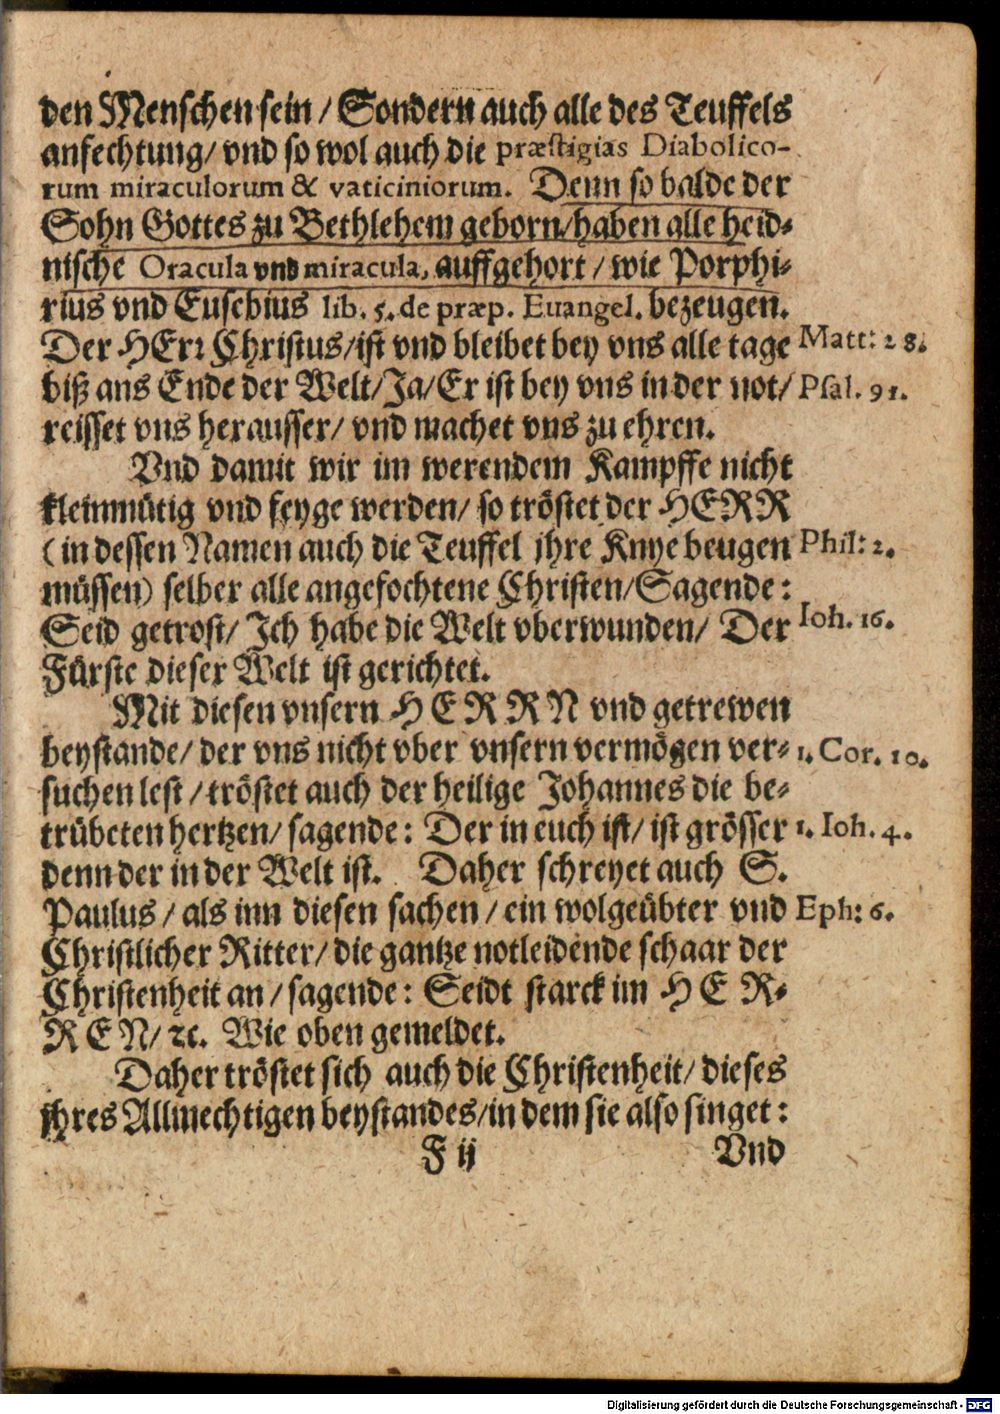 den Menschen sein / Sondern auch alle des Teuffels
anfechtung/ vnd so wol auch die præstigias Diabolico-
rum miraculorum & vaticiniorum. Denn so balde der
Sohn Gottes zu Bethlehem geborn/haben alle heid-
nische Oracula vnd miracula, auffgehort / wie Porphi-
rius vnd Eusebius lib. 5. de præp. Euangel. bezeugen.
Der HErr Christus/ist vnd bleibet bey vns alle tage Matt: 28.
biß ans Ende der Welt/Ja/Er ist bey vns in der not/ Psal. 91.
reisset vns herausser/ vnd machet vns zu ehren.
Vnd damit wir im werendem Kampffe nicht
kleinmütig vnd feyge werden/ so tröstet der HERR
(in dessen Namen auch die Teuffel jhre Knye beugen Phil: 2.
müssen) selber alle angefochtene Christen/Sagende:
Seid getrost/ Ich habe die Welt vberwunden/ Der Ioh. 16.
Fürste dieser Welt ist gerichtet.
Mit diesen vnsern HERRN vnd getrewen
beystande/ der vns nicht vber vnsern vermögen ver- 1. Cor. 10.
suchen lest / tröstet auch der heilige Johannes die be-
trübeten hertzen/ sagende: Der in euch ist/ ist grösser 1. Ioh. 4.
denn der in der Welt ist. Daher schreyet auch S.
Paulus / als inn diesen sachen / ein wolgeübter vnd Eph: 6.
Christlicher Ritter/ die gantze notleidende schaar der
Christenheit an / sagende: Seidt starck im HER-
REN/ ꝛc. Wie oben gemeldet.
Daher tröstet sich auch die Christenheit/ dieses
jhres Allmechtigen beystandes/in dem sie also singet:
F ij Vnd
Digitalisierung gefördert durch die Deutsche Forschungsgemeinschaft - DFG